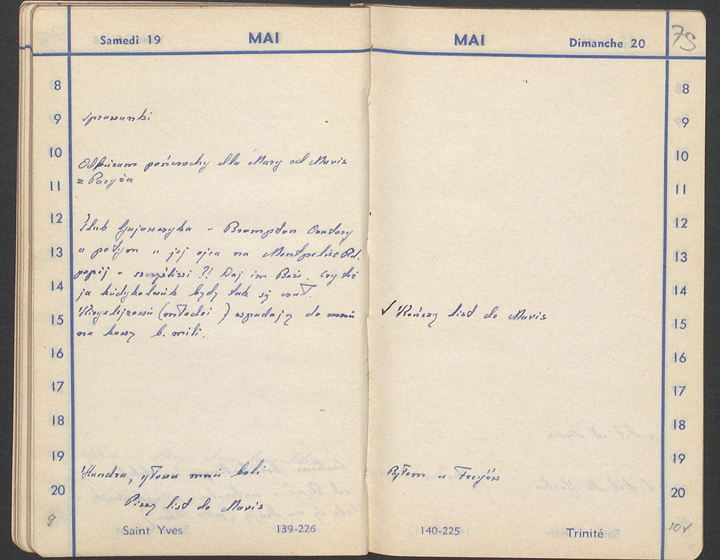 Samedi 19
MAI
8
9
sprawunki
10
Odbieram pończochy dla Mary od Mavis
11
z Paryża
12
Ślub Gajewczyka - Brompton Oratory
a potym u jej ojca na Montpelier Rd.
13
popij - szczęśliwi ?! Daj im Boże. Czy też
14
ja kiedykolwiek będę tak się czuł.
15
(młodzi) wpadają do mnie
na kawę b. mili.
16
17
18
19
Chandra, głowa mnie boli
20
Piszę list do Mavis
9
Saint Yves
139-226
MAI
Dimanche 20
75
8
9
10
11
12
13
14
15
√ Kończę list do Mavis
16
17
18
19
Byłem u
20
140-225
Trinité
104